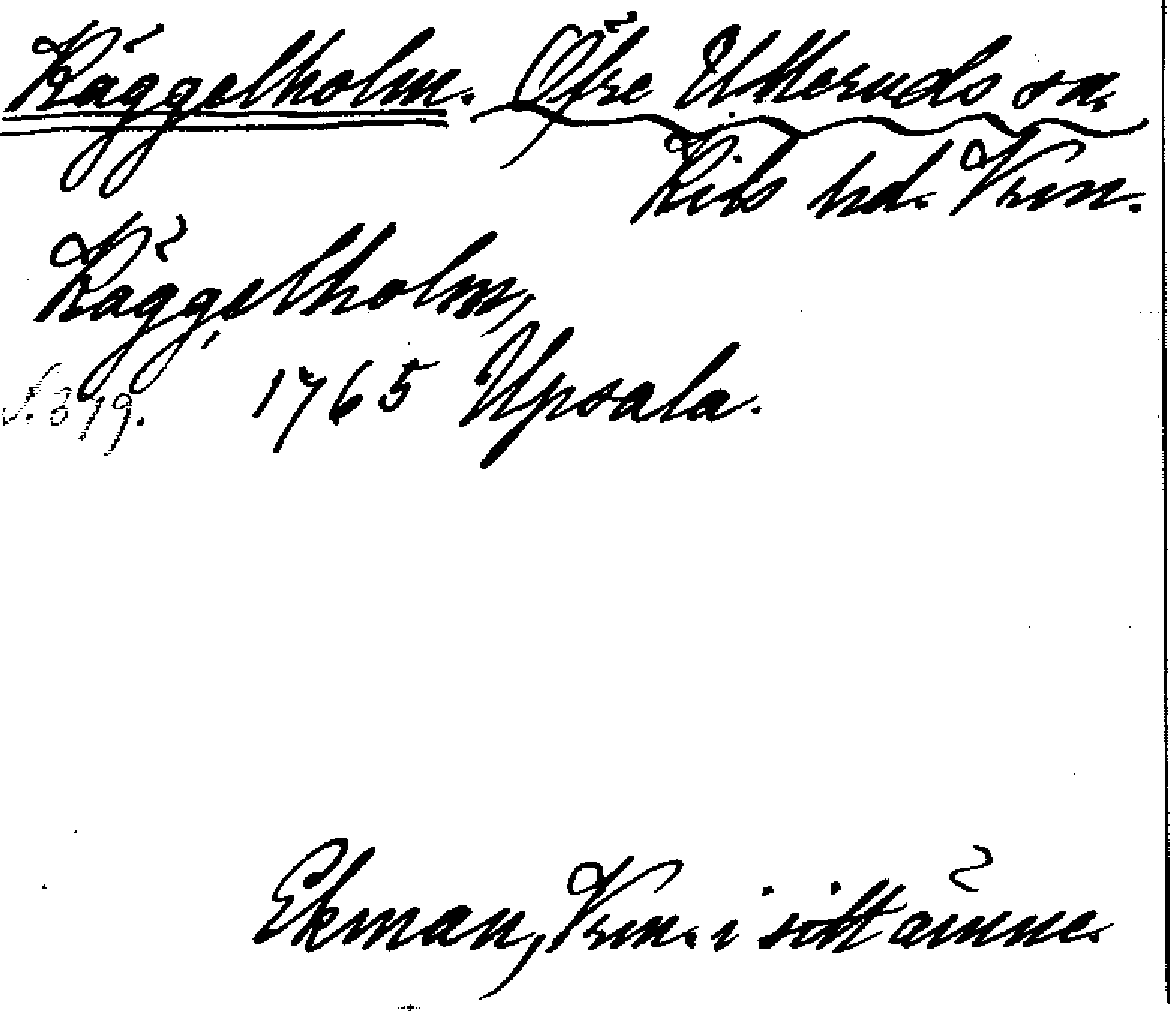 Käggelholm. Öfre Ulleruds sn.
Kils hd. Vrm.
Käggelholm,
S. 319. 1765 Upsala.
Ekman, Vrm. i sitt ämne.